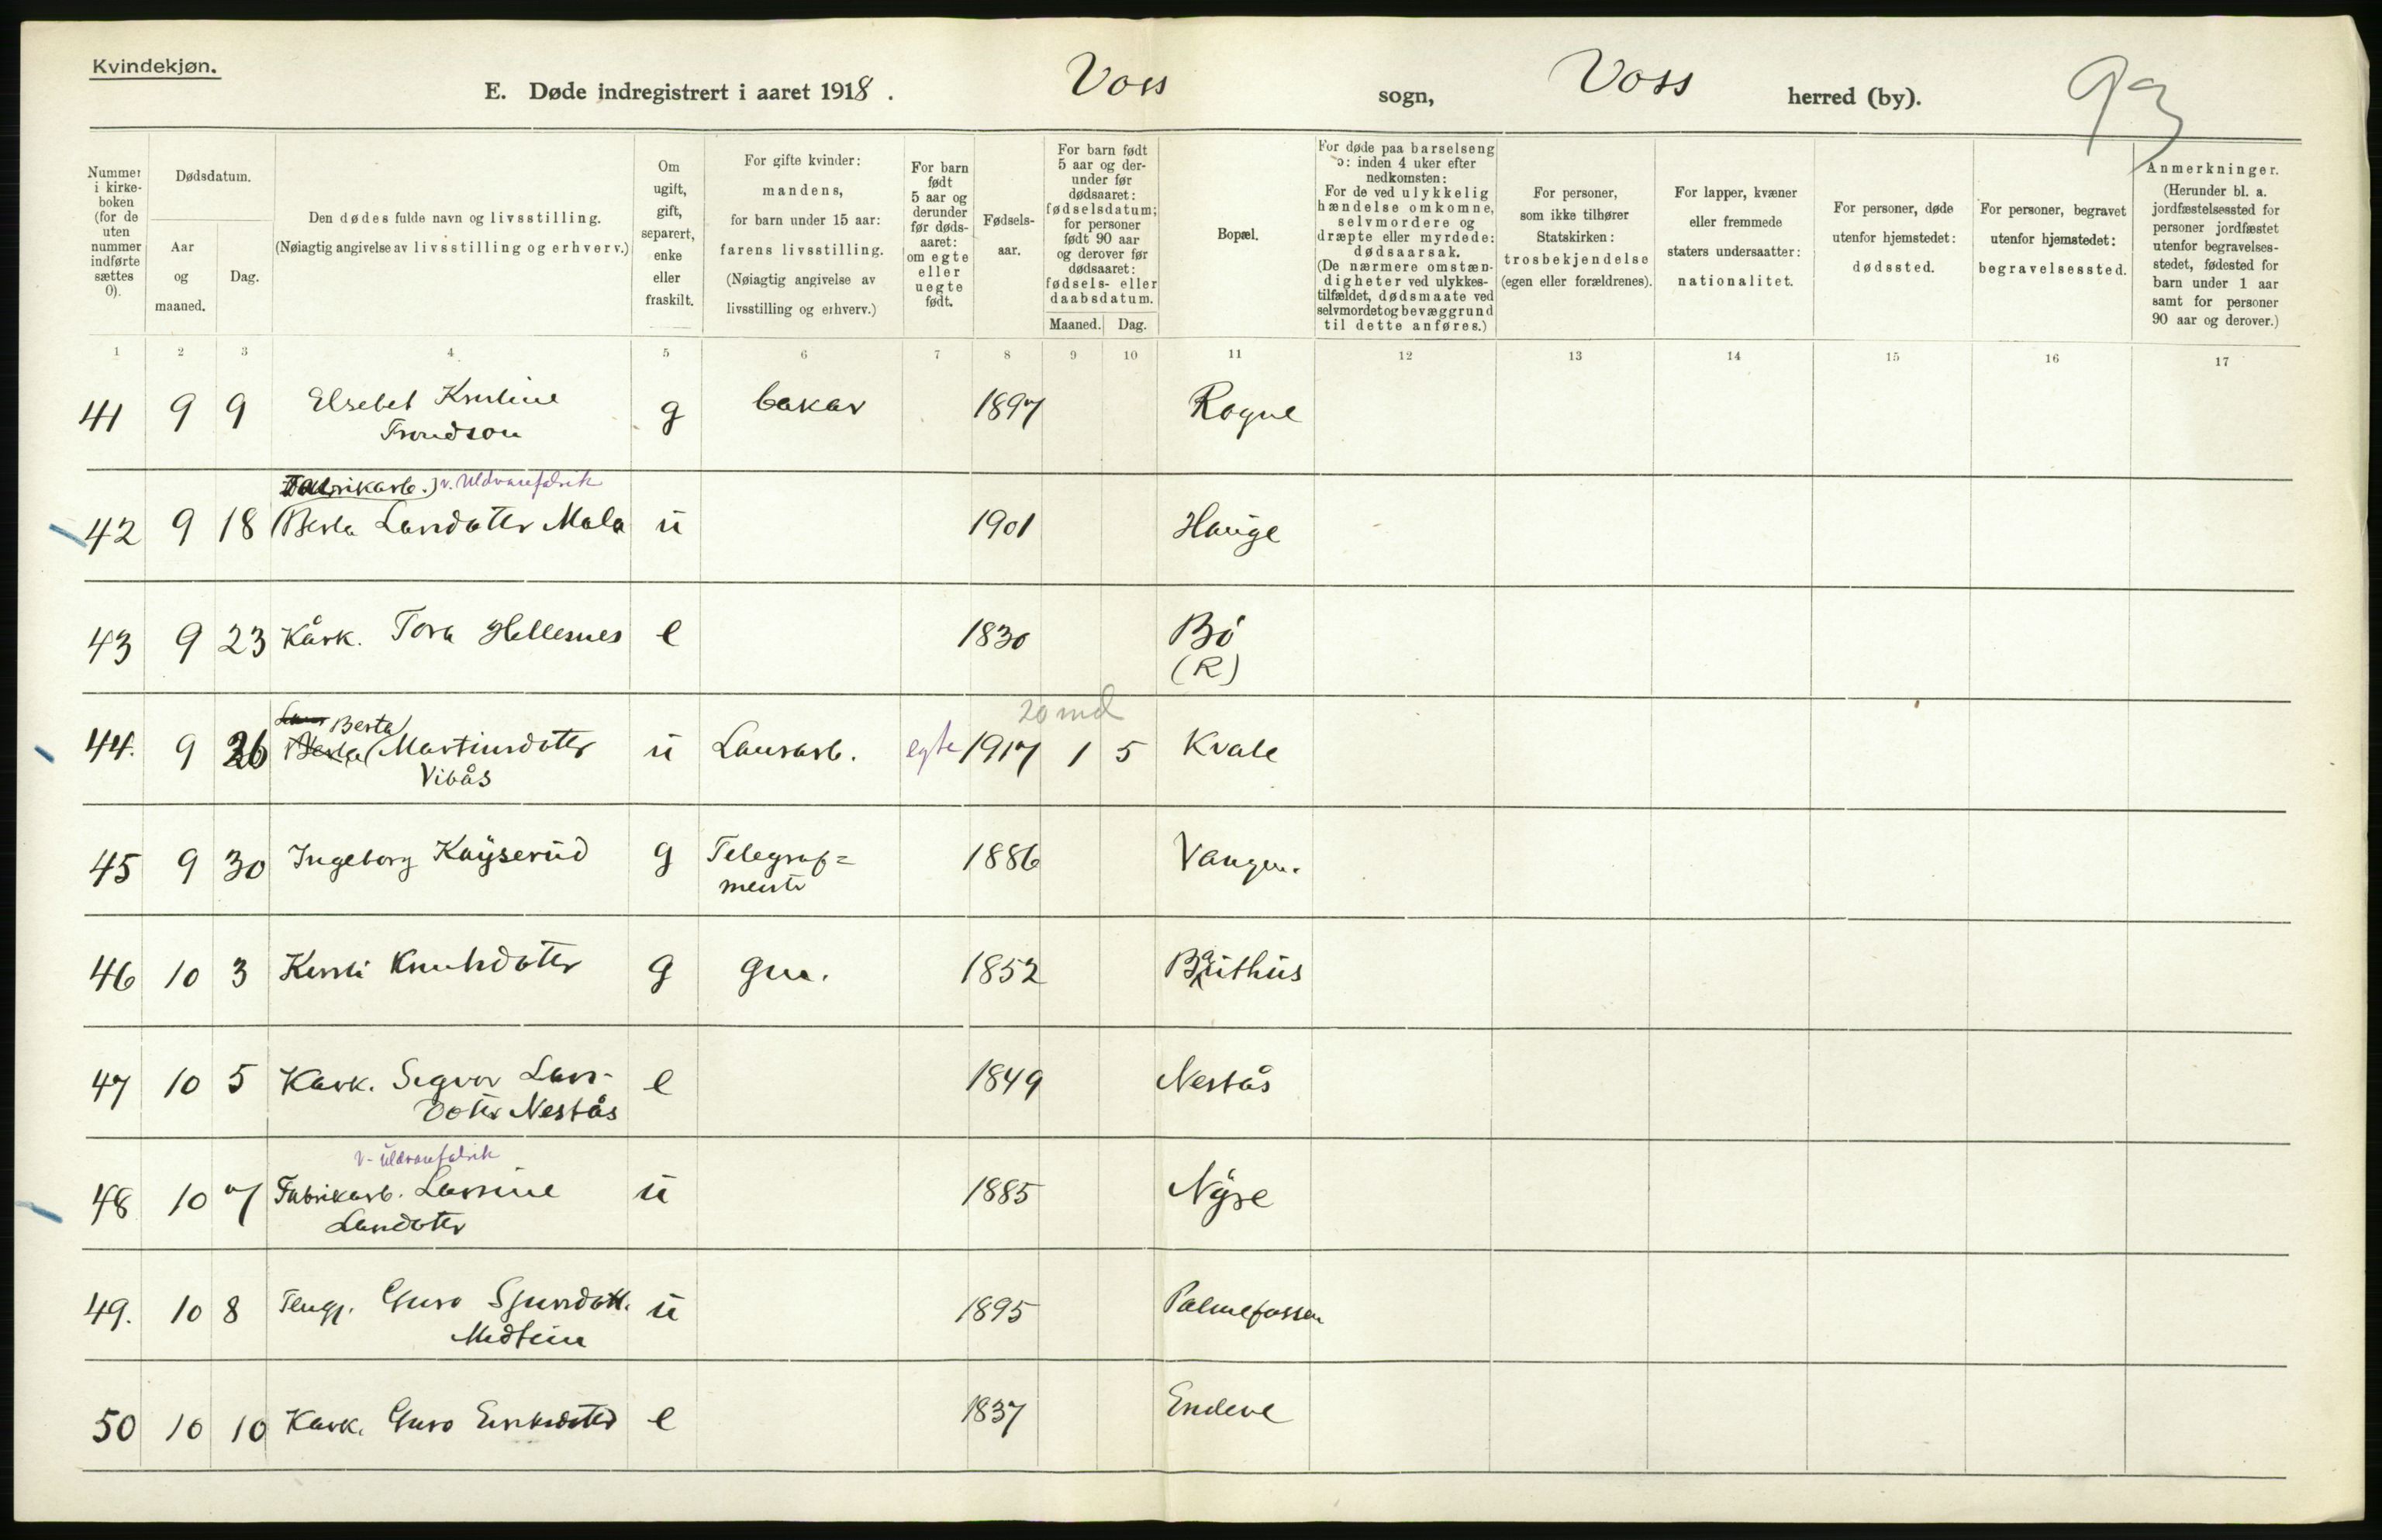 Kvindekjøn.
E. Døde indregistrert i aaret 1918. Voss sogn, Voss herred (by). 93
Nummer i kirke-boken (for de uten nummer indførte sættes 0).
Dødsdatum.
Aar og maaned.
Dag.
Den dødes fulde navn og livsstilling.
(Nøiagtig angivelse av livsstilling og erhverv.)
Om ugift, gift, separert, enke eller fraskilt.
For gifte kvinder: mandens, for barn under 15 aar: farens livsstilling. (Nøiagtig angivelse av livsstilling og erhverv.)
For barn født 5 aar og derunder før døds-aaret: om egte eller uegte født.
Fødsels-aar.
For barn født 5 aar og der-under før dødsaaret: fødselsdatum; for personer født 90 aar og derover før dødsaaret: fødsels- eller daabsdatum.
Maaned. Dag.
Bopæl.
For døde paa barselseng ɔ: inden 4 uker efter nedkomsten: For de ved ulykkelig hændelse omkomne, selvmordere og dræpte eller myrdede: dødsaarsak. (De nærmere omstæn-digheter ved ulykkes-tilfældet, dødsmaate ved selvmordet og bevæggrund til dette anføres.)
For personer, som ikke tilhører Statskirken: trosbekjendelse (egen eller forældrenes).
For lapper, kvæner eller fremmede staters undersaatter: nationalitet.
For personer, døde utenfor hjemstedet: dødssted.
For personer, begravet utenfor hjemstedet: begravelsessted.
Anmerkninger. (Herunder bl. a. jordfæstelsessted for personer jordfæstet utenfor begravelses-stedet, fødested for barn under 1 aar samt for personer 90 aar og derover.)
1 2 3 4 5 6 7 8 9 10 11 12 13 14 15 16 17
41 9 9 Elsebet Kristine g bakar 1897 Rogne
Trondson
Fabrikarb. v. Uldvarefabrik
42 9 18 Berta Larsdotter Mala u 1901 Hauge
43 9 23 Kårk. Tora Hellesnes e 1830 Bø
(R)
20 md
Berta
44. 9 26 Berta Martinsdotter u Lausarb. egte 1917 1 5 Kvale
Vibås
45 9 30 Ingeborg Kayserud g Telegraf= 1886 Vangen.
mester
46 10 3 Kristi Knutsdotter g gm. 1852 Bauthus
47 10 5 Kark. Sigvor Lars- e 1849 Nestås
doter Nestås
v. uldvarefabrik
48 10 7 Fabrikarb. Larsine u 1885 Nyre
Larsdoter
49. 10 8 Guro Sjursdott. u 1895 Palmefossen
50 10 10 Kark. Guro Eiriksdotter e 1837 Endeve